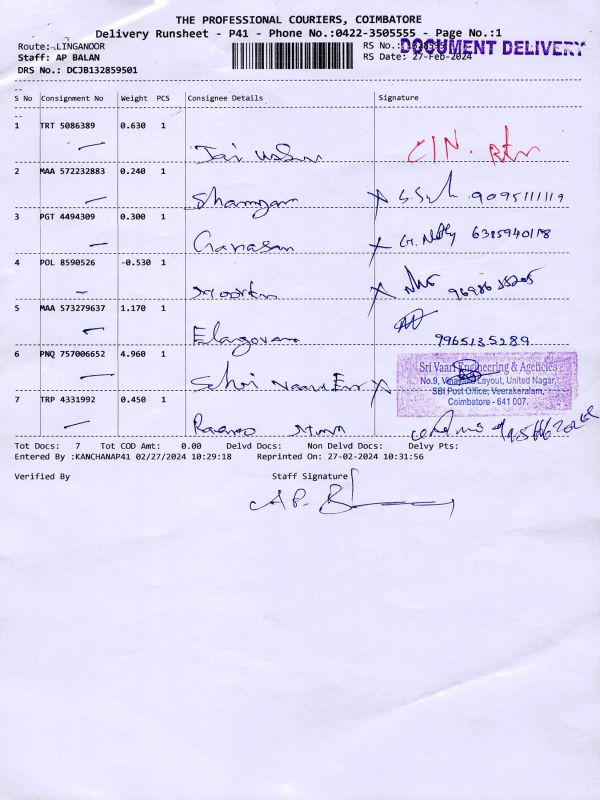 THE PROFESSIONAL COURIERS, COIMBATORE
Delivery Runsheet - P41 - Phone No.:0422-3505555 - Page No.:1
Route: LINGANOOR
RS No.:
DOCUMENT DELIVERY
Staff: AP BALAN
RS Date: 27-Feb-2024
DRS No.: DCJB132859501
S No Consignment No Weight PCS Consignee Details Signature
1 TRT 5086389 0.630 1
C/N. Rtn
2 MAA 572232883 0.240 1
Shamgam 9095111119
3 PGT 4494309 0.300 1
Ganasan 6385940118
4 POL 8590526 -0.530 1
5 MAA 573279637 1.170 1
Elangovan 9965135289
6 PNQ 757006652 4.960 1
Sri Vaari Engineering & Agencies
No.9, Vinayaka Layout, United Nagar,
SBI Post Office, Veerakeralam,
Coimbatore - 641 007.
7 TRP 4331992 0.450 1
Tot Docs: 7 Tot COD Amt: 0.00 Delvd Docs: Non Delvd Docs: Delvy Pts:
Entered By :KANCHANAP41 02/27/2024 10:29:18 Reprinted On: 27-02-2024 10:31:56
Verified By Staff Signature
AP. B